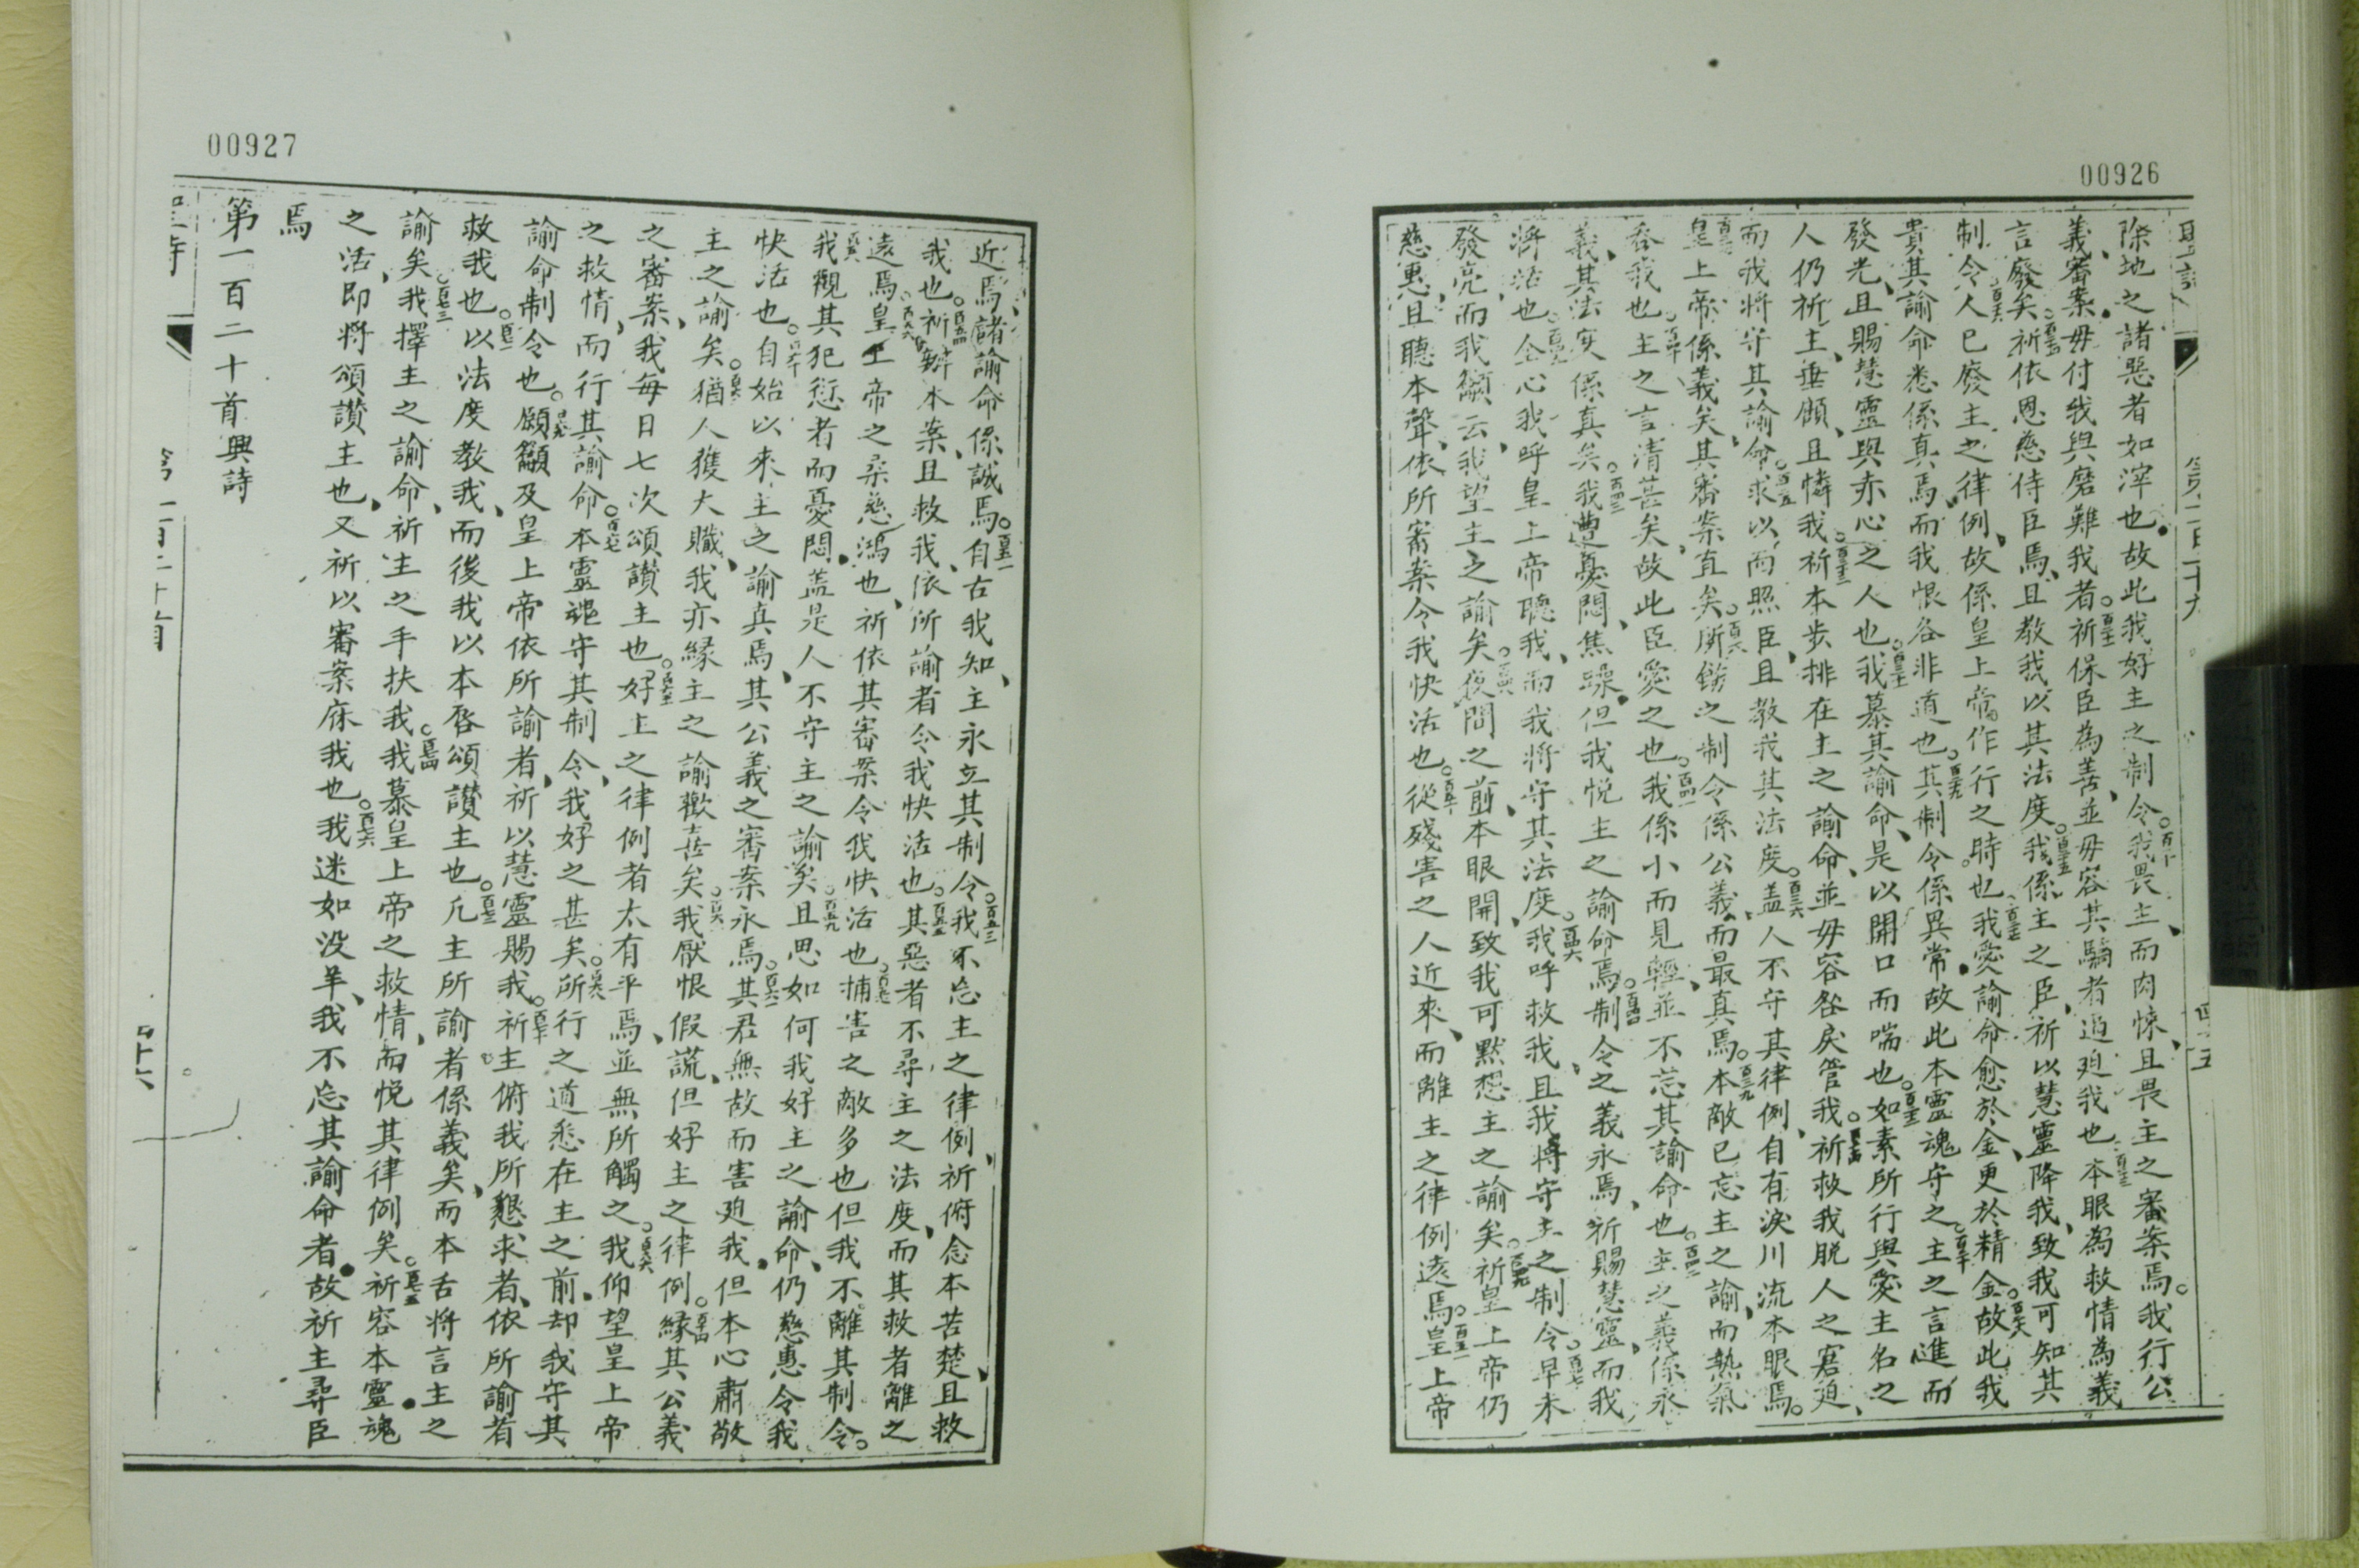 00926
聖詩
第一百一十九
四十五
除地之諸惡者如滓也故此我好主之制令○百二十我畏主而肉悚且畏主之審案焉○我行公
義審案毋付我與磨難我者○百廿二祈保臣為善並毋容其驕者迫迫我也○百廿三本眼為救情為義
言廢矣○百廿四祈依恩慈侍臣焉且教我以其法度○百廿五我係主之臣祈以慧靈降我致我可知其
制令○百廿六人已廢主之律例故係皇上帝作行之時也○百廿七我愛諭命愈於金更於精金○百廿八故此我
貴其諭命悉係真焉而我恨各非道也○百廿九其制令係異常故此本靈魂守之○百三十主之言進而
發光且賜慧靈與赤心之人也○百三十一我慕其諭命是以開口而喘也○百三十二如素所行與愛主名之
人仍祈主垂顧且憐我○百三十三祈本步排在主之諭命並毋容咎戾管我○百三十四祈救我脫人之窘迫
而我將守其諭命○百三十五求以面照臣且教我其法度○百三六蓋人不守其律例自有淚川流本眼焉○
百三七皇上帝係義矣其審案直矣○百三八所飭之制令係公義而最真焉○百三九本敵已忘主之諭而熱氣
吞我也○百四十主之言清甚矣故此臣愛之也○百四一我係小而見輕並不忘其諭命也○百四二主之義係永
義其法度係真矣○百四三我遭憂悶焦躁但我悅主之諭命焉○百四四制令之義永焉祈賜慧靈而我
將活也○百四五全心我呼皇上帝聽我而我將守其法度○百四六我呼救我且我將守主之制令○百四七早未
發亮而我籲云我望主之諭矣○百四八夜間之前本眼開致我可默想主之諭矣○百四九祈皇上帝仍
慈惠且聽本聲依所審案令我快活也○百五十從殘害之人近來而離主之律例遠焉○百五一皇上帝
00927
近焉諸諭命係誠焉○百五二自古我知主永立其制令○百五三我不忘主之律例祈俯念本苦楚且救
我也○百五四祈辨本案且救我依所諭者令我快活也○百五五其惡者不尋主之法度而其救者離之
遠焉○百五六皇上帝之慈鴻也祈依其審案令我快活也○百五七捕害之敵多也但我不離其制令○
百五八我觀其犯愆者而憂悶蓋是人不守主之諭矣○百五九且思如何我好主之諭命仍慈惠令我
快活也○百六十自始以來主之諭真焉其公義之審案永焉○百六一其君無故而害迫我但本心肅敬
主之諭矣○百六二猶人獲大贓我亦緣主之諭歡喜矣○百六三我厭恨假謊但好主之律例○百六四緣其公義
之審案我每日七次頌讚主也○百六五好主之律例者太有平焉並無所觸之○百六六我仰望皇上帝
之救情而行其諭命○百六七本靈魂守其制令我好之甚矣○百六八所行之道悉在主之前却我守其
諭命制令也○百六九願籲及皇上帝依所諭者祈以慧靈賜我○百七十祈主俯我所懇求者依所諭者
救我也○百七一以法度教我而後我以本唇頌讚主也○百七二凡主所諭者係義矣而本舌將言主之
諭矣○百七三我擇主之諭命祈主之手扶我○百七四我慕皇上帝之救情而悅其律例矣○百七五祈容本靈魂
之活即將頌讚主也又祈以審案庥我也○百七六我迷如没羊我不忘其諭命者故祈主尋臣
焉
第一百二十首興詩
聖詩
第一百二十首
四十六